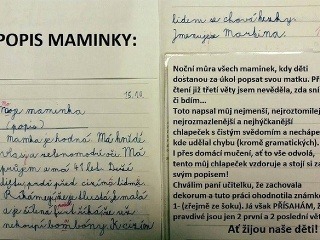 POPIS MAMINKY:
15.10.
Moje maminka
(popis)
Mamka je hodná. Má hnědé
vlasy a
Má
průjem a má 41 let. Drží
dietu
je tlustá, malá
a je
říkáže
nekoupí bombony. K cizím
lidem se chová hezky.
Jmenuje se Martina.
Noční můra všech maminek, kdy děti
dostanou za úkol popsat svou matku. Při
čtení již třetí věty jsem nevěděla, zda sním
či bdím...
Toto napsal můj nejmenší, nejroztomilejší,
nejrozmazlenější a nejhýčkanější
chlapeček s čistým svědomím a nechápe,
kde udělal chybu (kromě gramatických).
I přes domácí mučení, ať to vše odvolá,
tento můj chlapeček vzdoruje a stojí si za
svým popisem!
Chválím paní učitelku, že zachovala
dekorum a tuto práci ohodnotila známkou
1- (zřejmě ze šoku). Já však PŘÍSAHÁM, že
pravdivé jsou jen 2 první a 2 poslední věty.
Ať žijou naše děti!